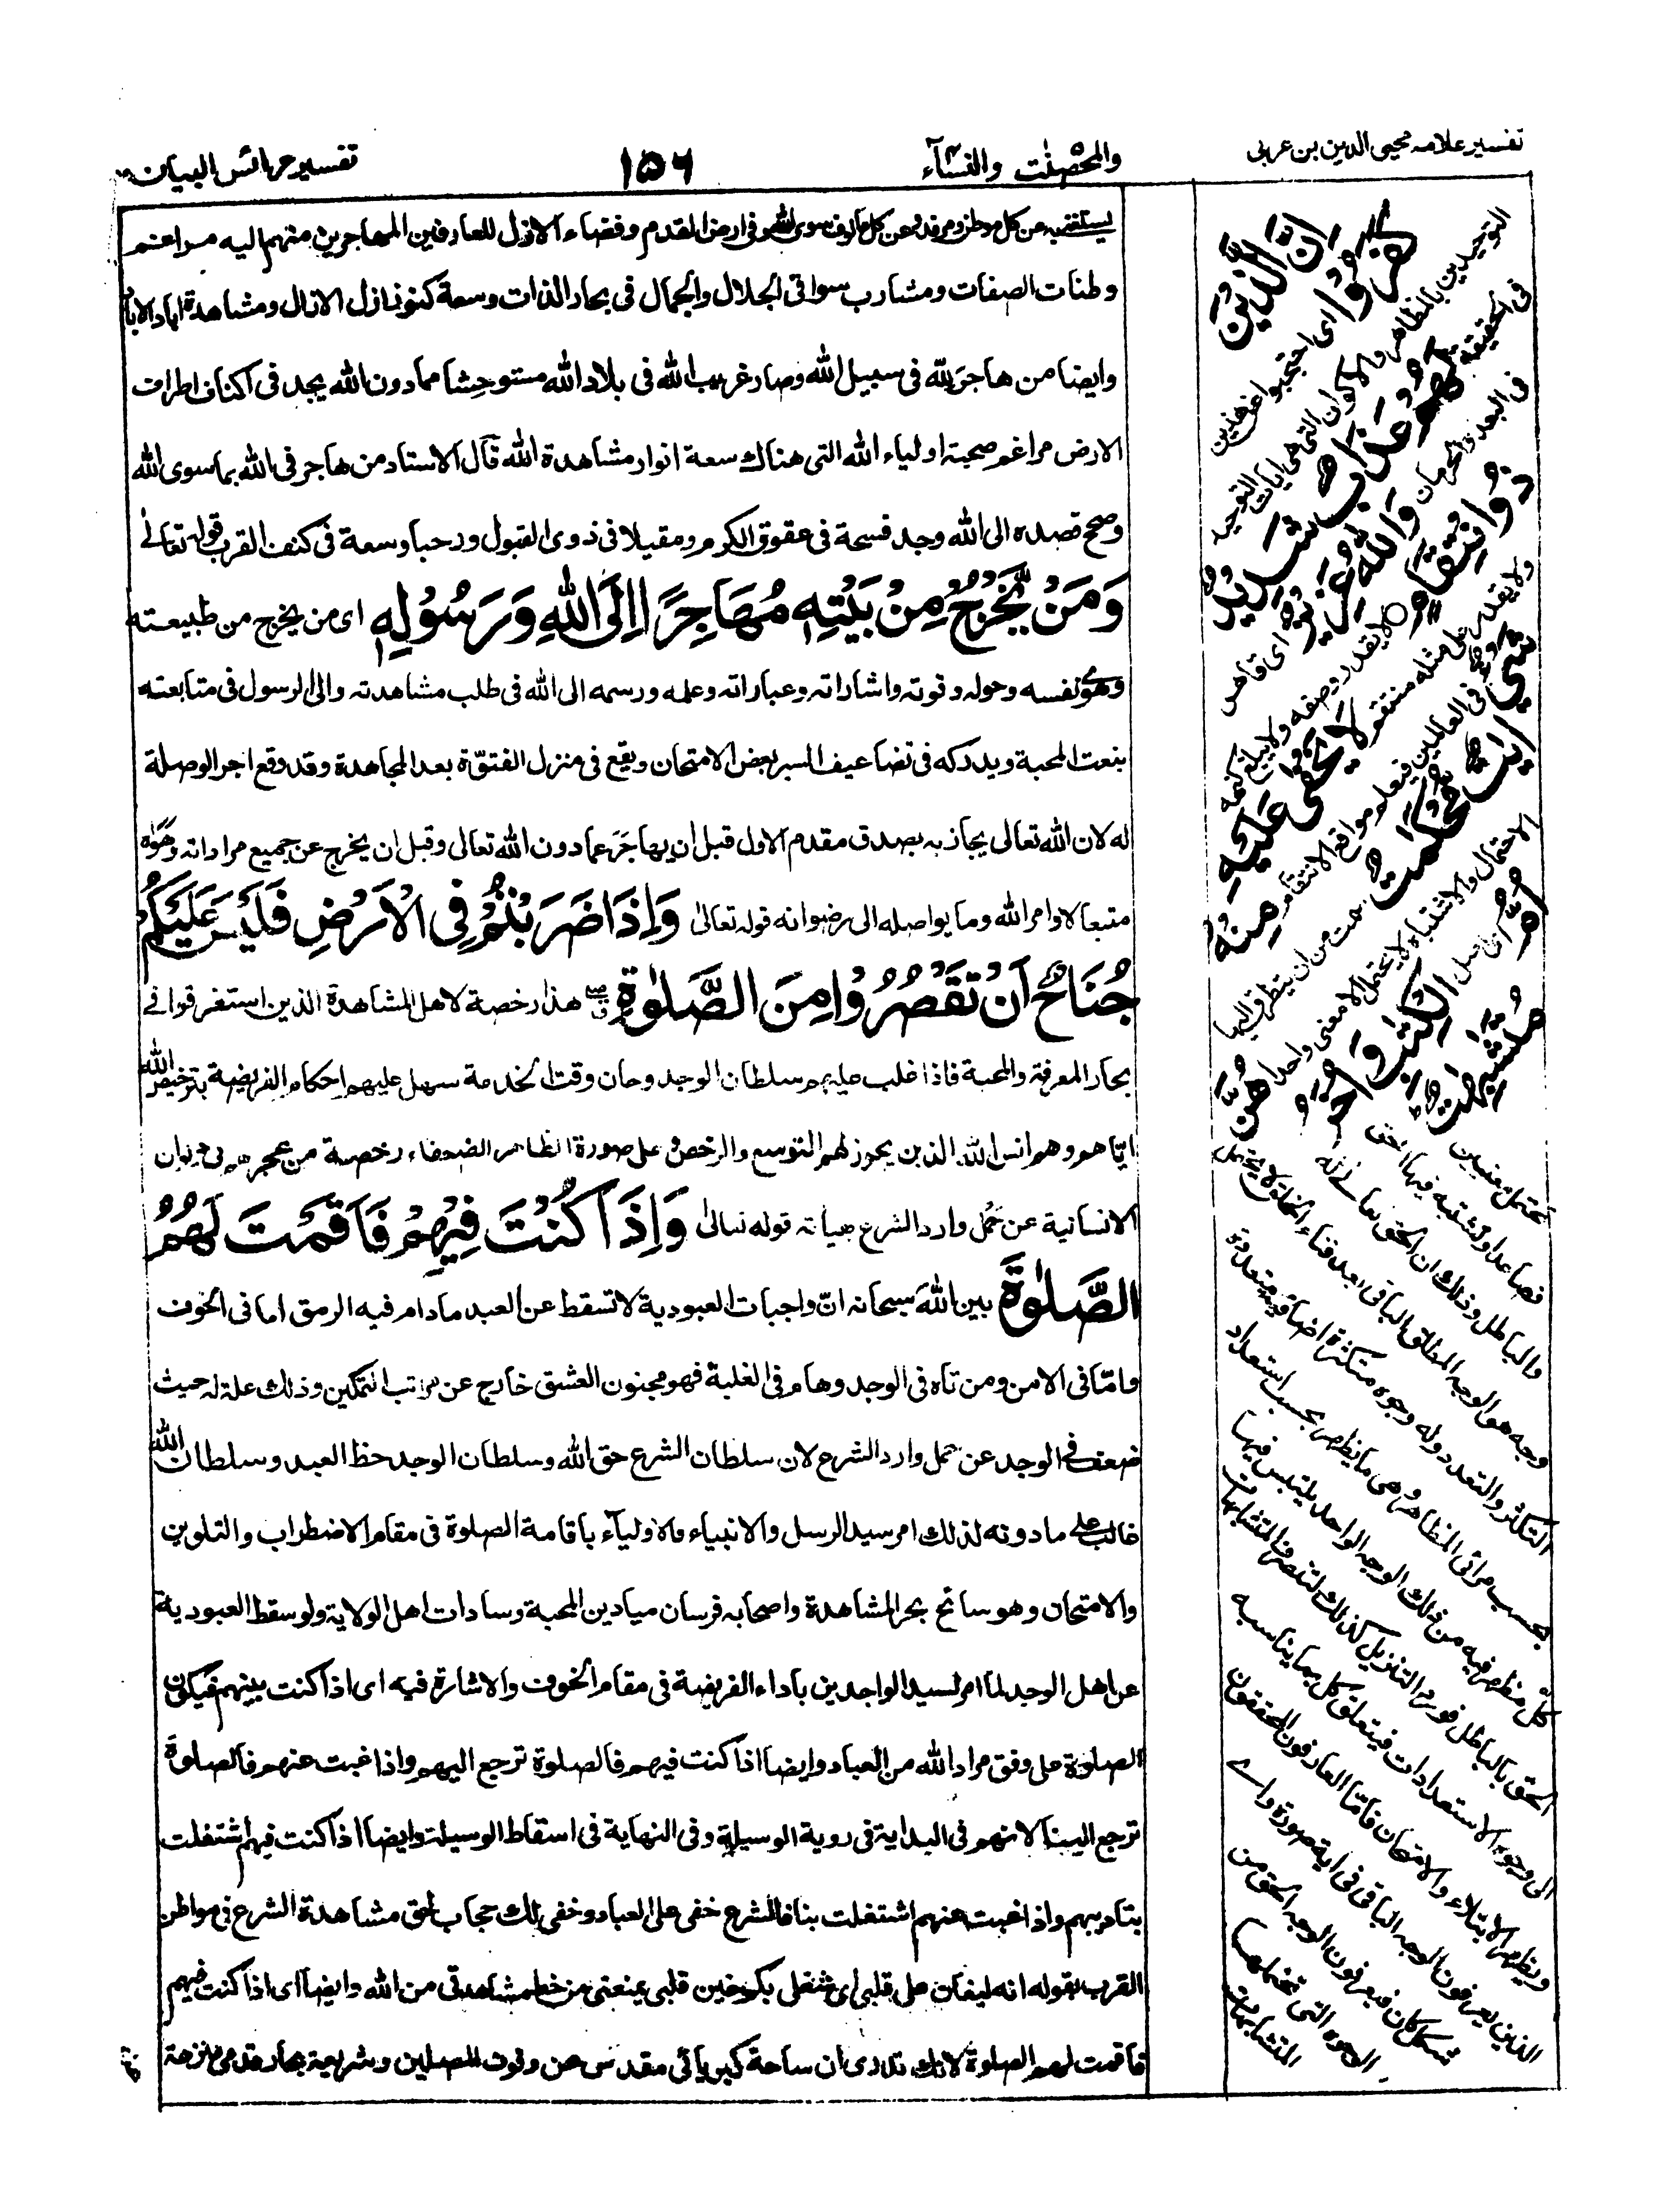 تفسير علامه محيى الدين بن عربى
والمحصنٰت والنسآء
١٥٦
تفسير عرائس البيان
من كل موطن ومرقد وعن كل مألوف سوى الله وفى ارض القدم وفضاء الازل للعارفين المهاجرين منهم اليه مراغم
وطنات الصفات ومشارب سواقى الجلال والجمال فى بحار الذات وسعة كنوز نازل الازال ومشاهدة اباد الاباد
وايضا من هاجر لله فى سبيل الله وصار غريب الله فى بلاد الله مستوحشا مما دون الله يجد فى اكناف اطراف
الارض مراغم صحبة اولياء الله التى هناك سعة انوار مشاهدة الله قال الاستاد من هاجر فى الله بما سوى الله
وصح قصده الى الله وجد فسحة فى عقوق الكرم ومقيلا فى ذوى القبول ورحبا وسعة فى كنف القرب قوله تعالے
وَمَنْ يَّخْرُجْ مِنْ بَيْتِهٖ مُهَاجِرًا اِلَى اللهِ وَرَسُوْلِهٖ اى من يخرج من طبيعته
وهوى نفسه وحوله وقوته واشاراته وعباراته وعلمه ورسمه الى الله فى طلب مشاهدته والى الرسول فى متابعته
بنعت المحبة ويدركه فى تضاعيف السير بعض الامتحان ويقع فى منزل الفتوّة بعد المجاهدة وقد وقع اجر الوصلة
له لان الله تعالى يجازيه بصدق مقدم الاول قبل ان يهاجر عما دون الله تعالى وقبل ان يخرج عن جميع مراداته وهواه
متبعا لاوامر الله وما يواصله الى رضوانه قوله تعالىٰ وَاِذَا ضَرَبْتُمْ فِى الْاَرْضِ فَلَيْسَ عَلَيْكُمْ
جُنَاحٌ اَنْ تَقْصُرُوْا مِنَ الصَّلٰوةِ هذا رخصة لاهل المشاهدة الذين استغرقوا فے
بحار المعرفة والمحبة فاذا غلب عليهم سلطان الوجد وحان وقت الخدمة سهل عليهم احكام الفريضة بترخيص الله
اياهم وهم انس الله الذين يجوز لهم التوسع والرخص على صورة الظاهر الضعفاء رخصة من عجزهم فى ميدان
الانسانية عن حمل وارد الشرع قوله تعالىٰ وَاِذَا كُنْتَ فِيْهِمْ فَاَقَمْتَ لَهُمُ
الصَّلٰوةَ بين الله سبحانه انّ واجبات العبودية لا تسقط عن العبد مادام فيه الرمق اما فى الخوف
وامّا فى الامن ومن تاه فى الوجد وهام فى الغلبة فهو مجنون العشق خارج عن مراتب التمكين وذلك علة له حيث
ضعف فى الوجد عن حمل وارد الشرع لان سلطان الشرع حق الله وسلطان الوجد حظ العبد وسلطان الله
غالب على ما دونه لذلك امر سيد الرسل والانبياء والاولياء باقامة الصلوة فى مقام الاضطراب والتلوين
والامتحان وهو سائح بحر المشاهدة واصحابه فرسان ميادين المحبة وسادات اهل الولاية ولو سقط العبودية
عن اهل الوجد لما امر لسيد الواجدين باداء الفريضة فى مقام الخوف والاشارة فيه اى اذا كنت بينهم فيكون
الصلوة على وفق مراد الله من العباد وايضا اذا كنت فيهم فالصلوة ترجع اليهم واذا غبت عنهم فالصلوة
ترجع الينا لانهم فى البداية فى روية الوسيلة وفى النهاية فى اسقاط الوسيلة وايضا اذا كنت فيهم اشتغلت
بتاديبهم واذا غبت عنهم اشتغلت بنا فالشرع خفى على العباد وخفى لك حجاب لحق مشاهدة الشرع فى مواطن
القرب بقوله انه ليغان على قلبى اى شغلى يمنعنى من مشاهدتى من الله وايضا اى اذا كنت فيهم
فاقمت لهم الصلوة لانك تدرى ان ساحة كبريائى مقدس عن وقوف المصلين وشريعة بحار قدمى منزهة
اِنَّ الَّذِيْنَ
كَفَرُوْا اى احتجبوا عن هذين
التوحيدين بالمظاهر والاكوان التى هى ايات التوحيد
فى الحقيقة لَهُمْ عَذَابٌ شَدِيْدٌ
فى البعد والحرمان وَاللهُ عَزِيْزٌ اى قاهر
ذُوانْتِقَامٍ ○ لا يقدر وصفه ولا يبلغ كنهه
ولا يقدر على مثله منتقم لَا يَخْفٰى عَلَيْهِ
شَىْءٌ فى العالمين فيعلم مواقع الانتقام مِنْهُ
اٰيٰتٌ مُّحْكَمٰتٌ من ان يتطرق اليها
الاحتمال والاشتباه لا يحتمل الا معنى واحدا هُنَّ
اُمُّ اى اصل الْكِتٰبِ وَاُخَرُ
مُتَشٰبِهٰتٌ
تحتمل معنيين
فصاعدا ويشتبه فيها الحق
والباطل وذلك ان الحق تعالےٰ له
وجه هو الوجه المطلق الباقى بعد فناء الخلق لا يحتمل
التكثر والتعدد وله وجوه متكثرة اضافية متعددة
بحسب مرائى المظاهر وهى ما يظهر بحسب استعداد
كلّ مظهر فيه من ذلك الوجه الواحد يلتبس فيها
الحق بالباطل فورد التنزيل كذلك لتنصرف المتشابهات
الى وجوه الاستعدادات فيتعلق كل بما يناسبه
ويظهر الابتلاء والامتحان فامّا العارفون المحققون
الذين يعرفون الوجه الباقى فى اية صورة واے
شكل كان فيعرفون الوجه الحق من
الوجوه التى تحتملها
المتشابهات